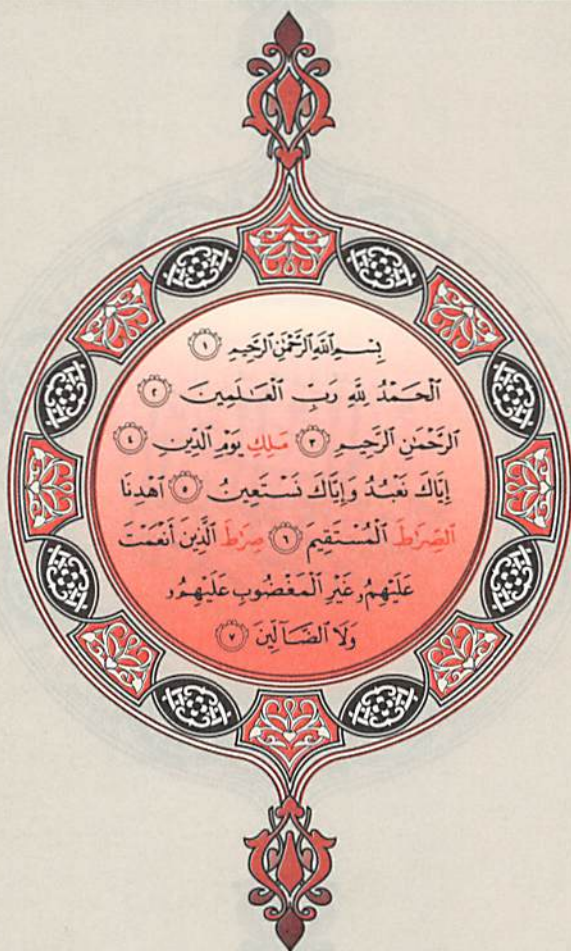 بِسْمِ ٱللَّهِ ٱلرَّحْمَٰنِ ٱلرَّحِيمِ ١
ٱلْحَمْدُ لِلَّهِ رَبِّ ٱلْعَٰلَمِينَ ٢
ٱلرَّحْمَٰنِ ٱلرَّحِيمِ ٣ مَلِكِ يَوْمِ ٱلدِّينِ ٤
إِيَّاكَ نَعْبُدُ وَإِيَّاكَ نَسْتَعِينُ ٥ ٱهْدِنَا
ٱلصِّرَٰطَ ٱلْمُسْتَقِيمَ ٦ صِرَٰطَ ٱلَّذِينَ أَنْعَمْتَ
عَلَيْهِمُۥ غَيْرِ ٱلْمَغْضُوبِ عَلَيْهِمُۥ
وَلَا ٱلضَّآلِّينَ ٧